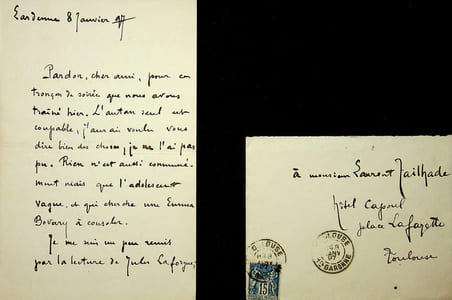 Lardenne 8 Janvier 97
Pardon, cher ami, pour ce
tronçon de soirée que nous avons
traîné hier. L'autan seul est
coupable, j'aurais voulu vous
dire bien des choses, je ne l'ai pas
pu. Rien n'est aussi communé-
ment niais que l'adolescent
vague, et qui cherche une Emma
Bovary à consoler.
Je me suis un peu remis
par la lecture de Jules Laforgue,
à monsieur Laurent Tailhade
Hôtel Capoul
place Lafayette
Toulouse
TOULOUSE
Hte GARONNE
15